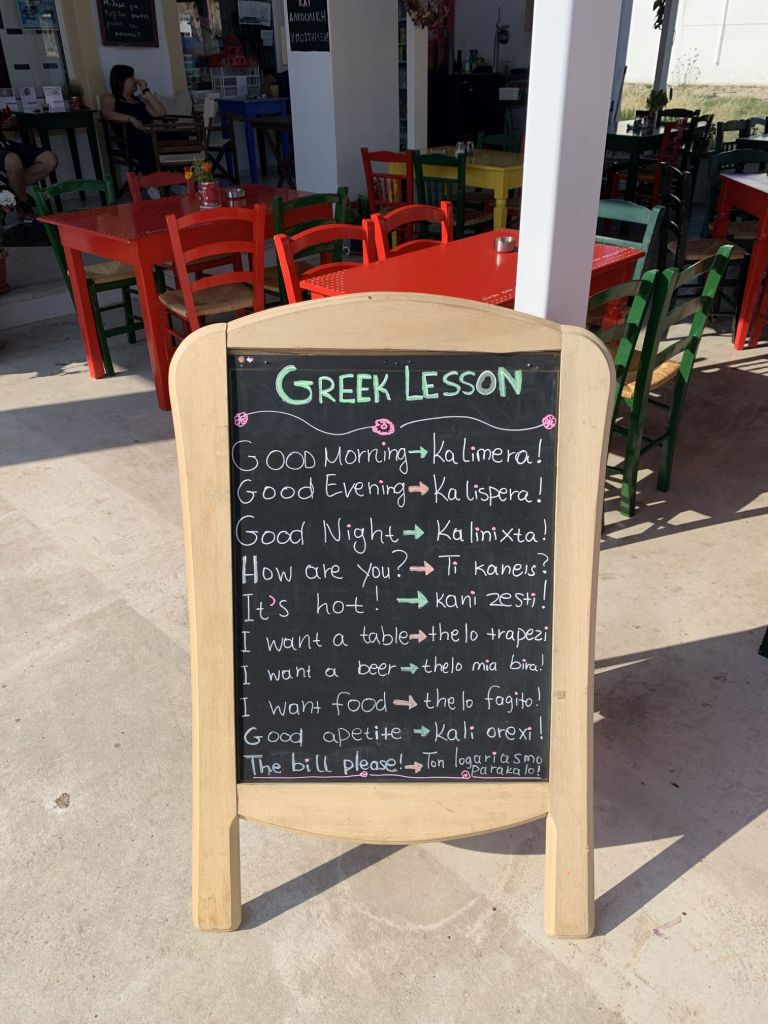 ΚΑΙ
ΑΛΚΟΟΛΙΚΗ
GREEK LESSON
GOOD Morning→Kalimera!
Good Evening→Kalispera!
Good Night→Kalinixta!
How are you?→Ti kaneis?
It's hot!→kani zesti!
I want a table→thelo trapezi
I want a beer→thelo mia bira!
I want food→thelo fagito!
Good apetite→Kali orexi!
The bill please!→Ton logariasmo
parakalo!